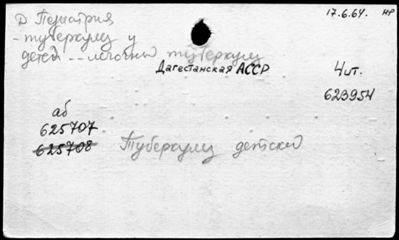 Д Педиатрия
17.6.64. НР
- туберкулез у
детей -- легочный туберкулез
Дагестанская АССР
Чит.
623954
аб
625707
625708
Туберкулез детский